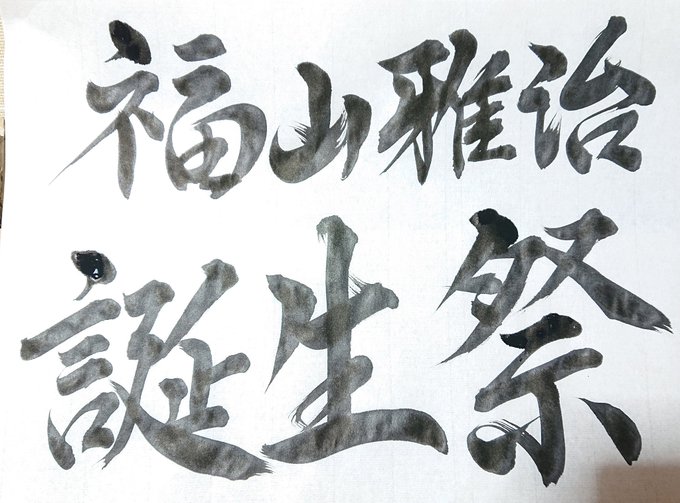 福山雅治
誕生祭